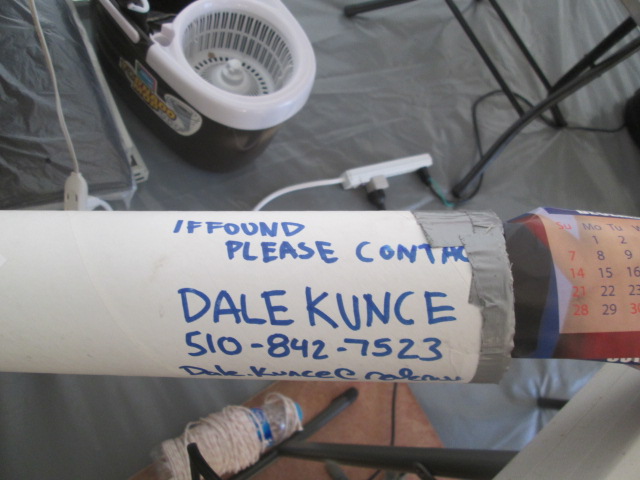 IF FOUND
PLEASE CONTAC
DALE KUNCE
510-842-7523
Su Mo Tu W
1 2
7 8 9
14 15 16
21 22 23
28 29 30